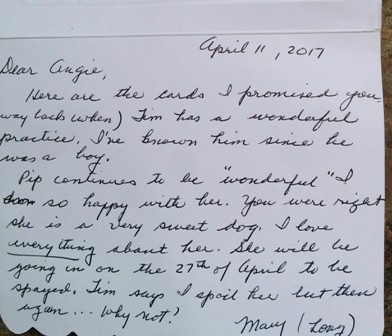 April 11, 2017
Dear Angie,
Here are the cards I promised you
way back when) Tim has a wonderful
practice. I've known him since he
was a boy.
Pip continues to be "wonderful" I
so happy with her. You were right
she is a very sweet dog. I love
everything about her. She will be
going in on the 27th of April to be
spayed. Tim says I spoil her but then
again... why not?
Mary (Long)